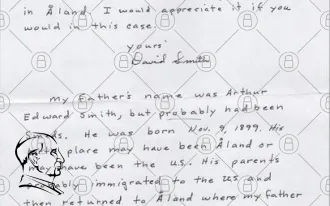 in Åland. I would appreciate it if you
would in this case.
yours
David Smith
My Father's name was Arthur
Edward Smith, but probably had been
He was born Nov. 9, 1899. His
place may have been Åland or
may have been the US. His parents
immigrated to the US and
then returned to Åland where my father